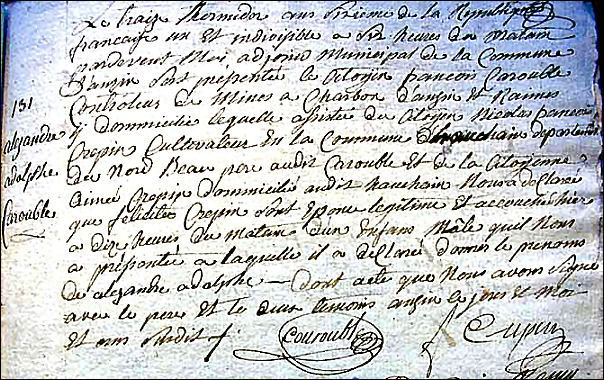 Le treize thermidor ans sixieme de la Republique
francaise un et indivisible a dix heures du matain
pardevent Moi, adjoint Municipal de la Commune
D'anzin sest pressenté le Citoyin francois Carouble
Controleur de Mines a Charbon d'anzin et Raimes
y Dommicilié lequelle assisté du Citoyin Nicolas francois
Crepin Cultevateur En la Commune departement
du Nord Beau pere audit Carouble et de la Citoyenne
aimée Crepin Domicilié audit hauchain Nous a declaré
que felicité Crepin sont Epouse legitime et accouchée hier
a dix heures du Matain d'un Enfans Mâle quil Nous
a pressentée a laquelle il a declaré donner le prenoms
de alexandre adolphe — Dont acte que Nous avons signé
avec le pere et le deux temoins anzin le jour et Moi
et ans susdit
131
alexandre
adolphe
Carouble
Couroubl
Crepin